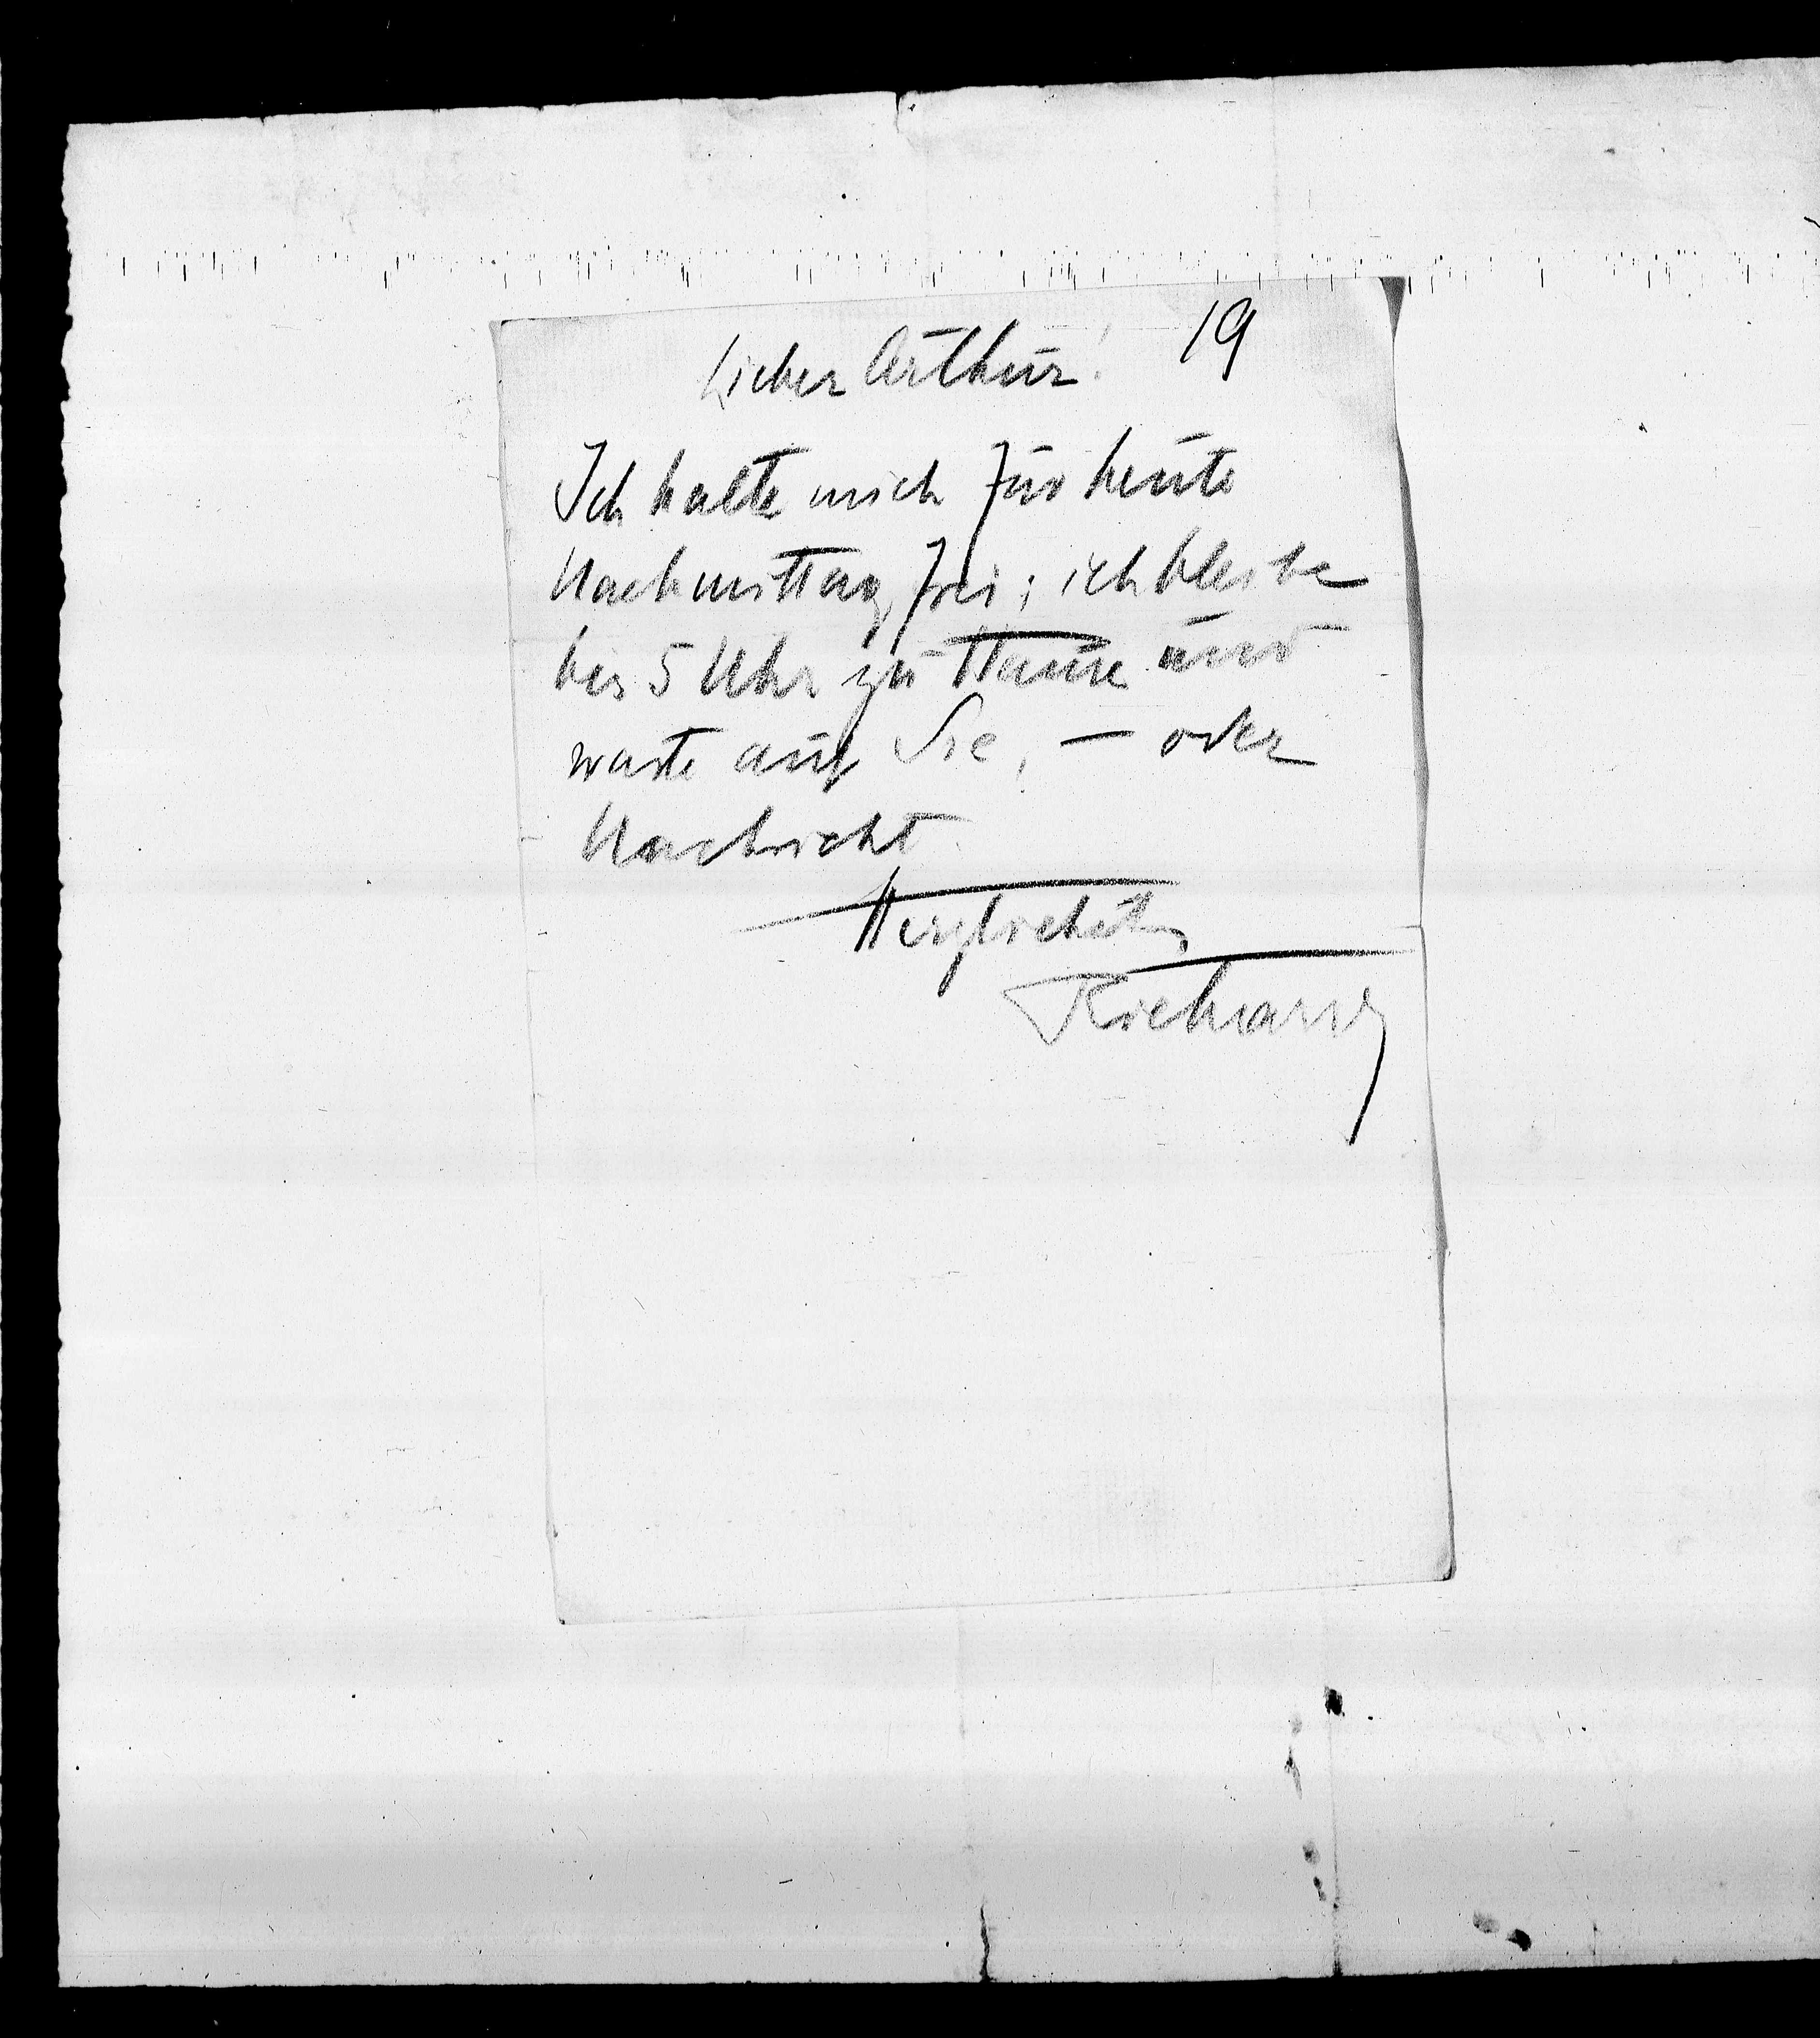 19
Lieber Arthur!
Ich halte mich für heute
Nachmittag frei; ich bleibe
bis 5 Uhr zu Hause und
warte auf Sie, – oder
Nachricht.
Herzlichst
Richard